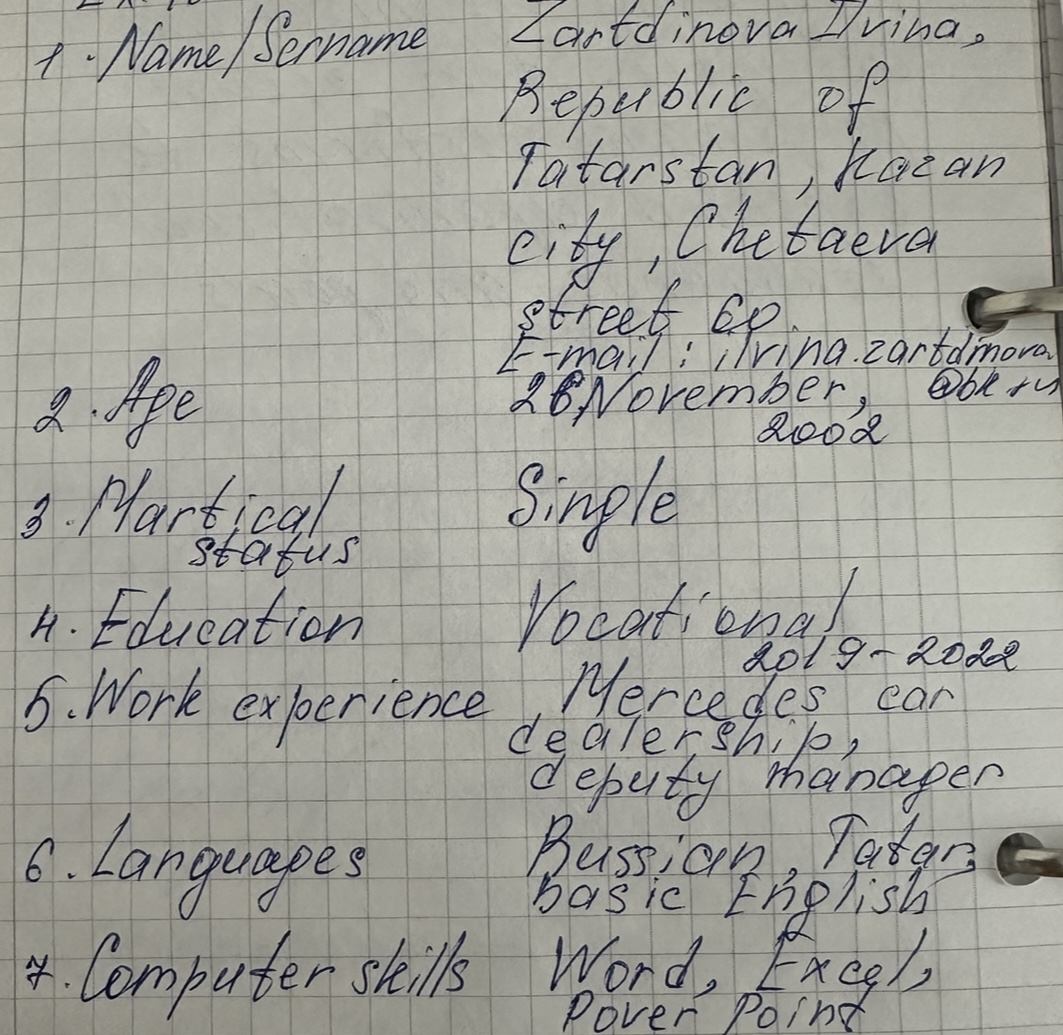 1. Name/Sername Zartdinova Ilvina,
Republic of
Tatarstan, Kazan
city, Chetaeva
street 60
E-mail: ilvina.zartdinova
@bk.ru
2. Age 26 November,
2002
3. Martical Single
status
4. Education Vocational
2019-2022
5. Work experience Mercedes car
dealership,
deputy manager
6. Languages Russian, Tatar,
basic English
7. Computer skills Word, Excel,
Pover Point